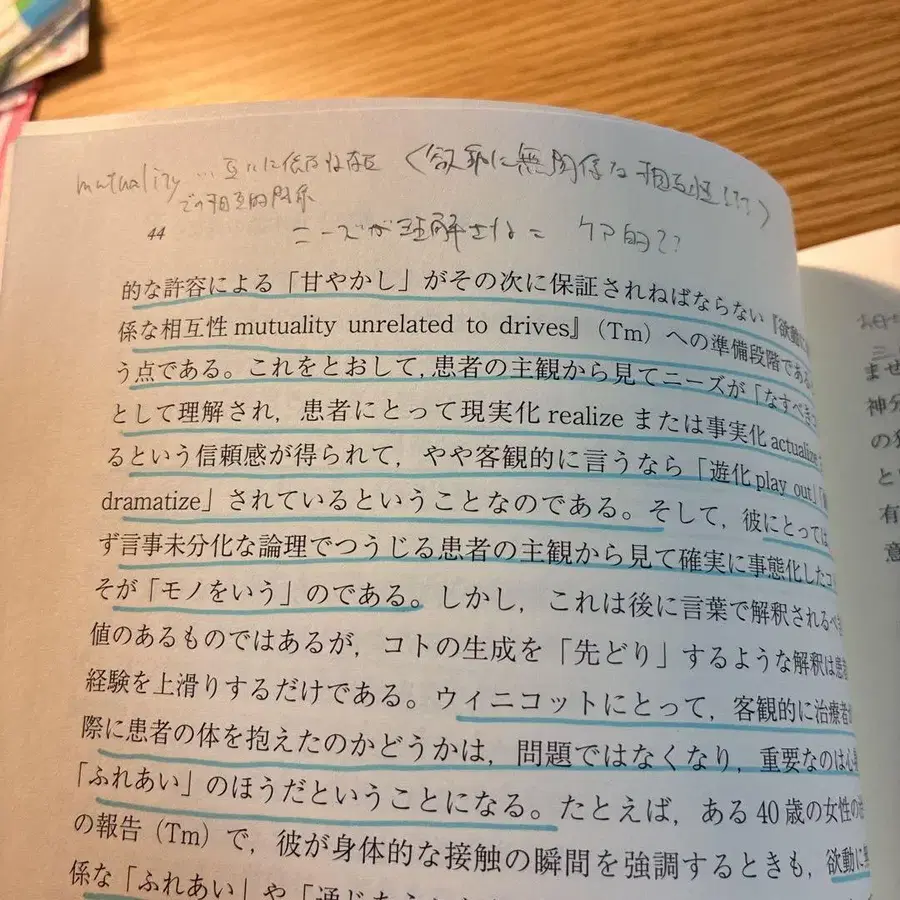 mutuality … 互いに依存的な存在 〈欲動に無関係な相互性って?〉
での相互的関係
ニーズが理解される= ケア的??
44
的な許容による「甘やかし」がその次に保証されねばならない『欲動に
係な相互性 mutuality unrelated to drives』(Tm)への準備段階である
う点である。これをとおして,患者の主観から見てニーズが「なすべき
として理解され,患者にとって現実化 realize または事実化 actualize
るという信頼感が得られて,やや客観的に言うなら「遊化 play out」
dramatize」されているということなのである。そして,彼にとっては
ず言事未分化な論理でつうじる患者の主観から見て確実に事態化したコ
そが「モノをいう」のである。しかし,これは後に言葉で解釈されるべき
値のあるものではあるが,コトの生成を「先どり」するような解釈は患
経験を上滑りするだけである。ウィニコットにとって,客観的に治療者
際に患者の体を抱えたのかどうかは,問題ではなくなり,重要なのは心
「ふれあい」のほうだということになる。たとえば,ある40歳の女性の
の報告(Tm)で,彼が身体的な接触の瞬間を強調するときも,欲動に
係な「ふれあい」や「通じ
ませ
神分
の
と
有
意